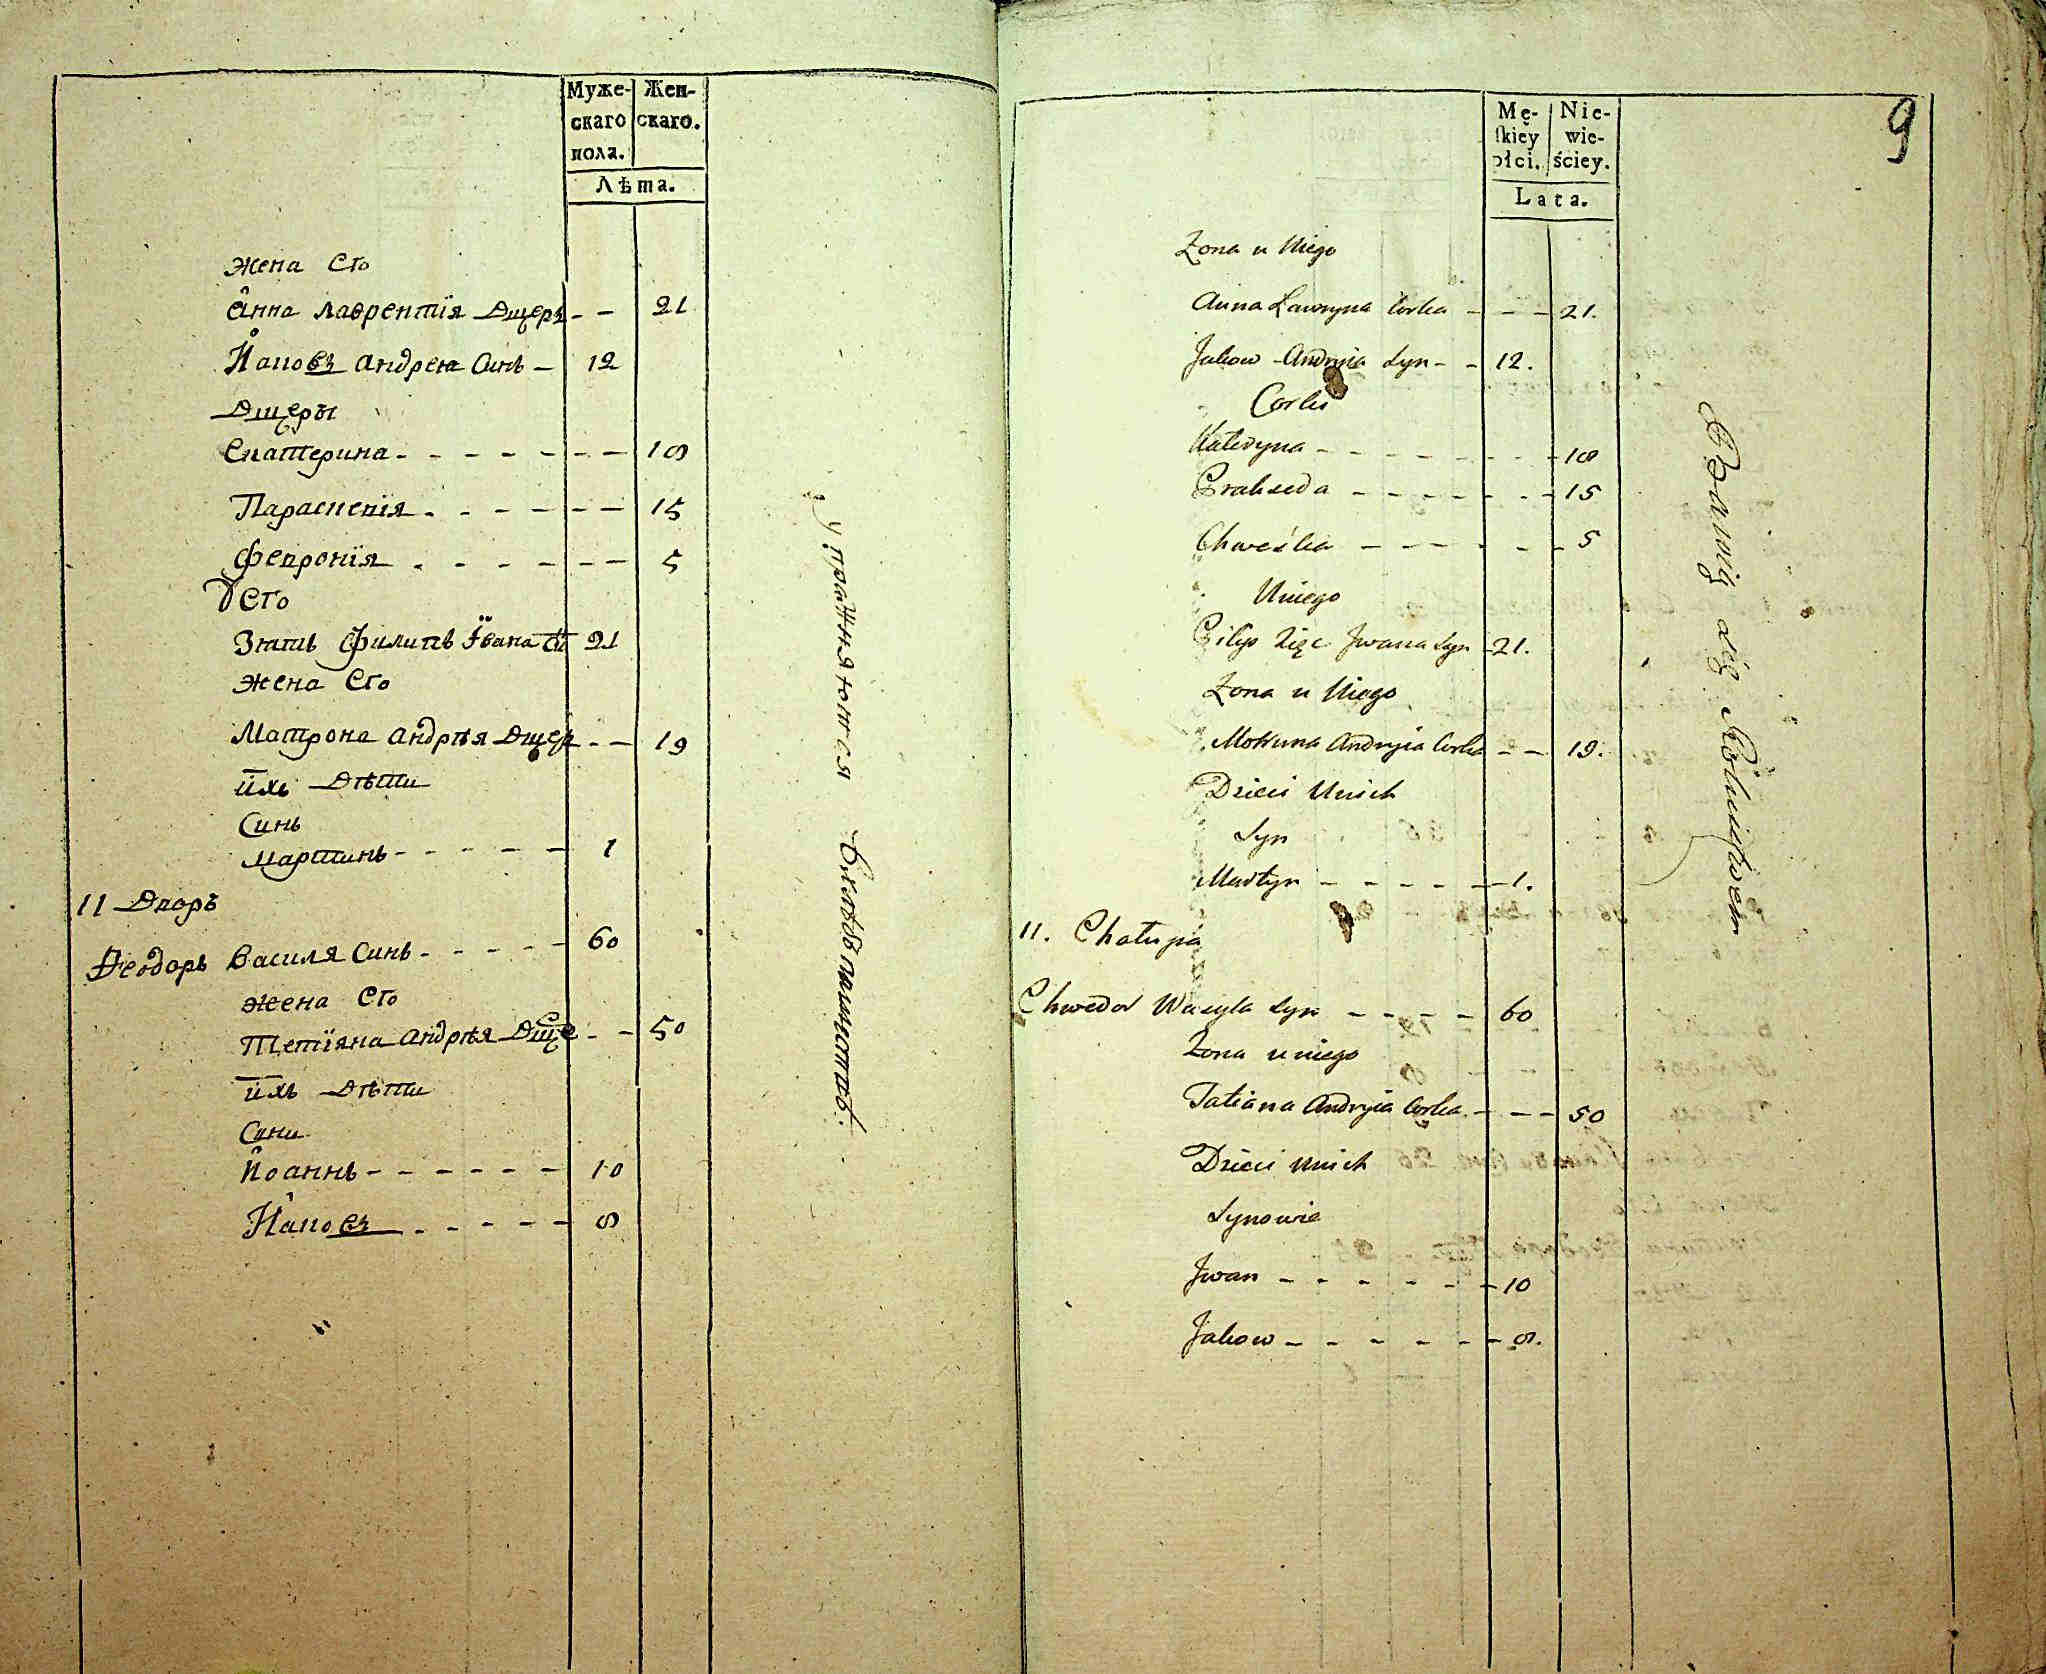 Муже-
скаго
пола.
Жен-
скаго.
Лѣта.
Жена Его
Анна Лаврентїя Дщерь - - 21
Іаковъ Андрея Синъ - 12
Дщеры
Екатерина - - - - - - - 18
Параскевія - - - - - - 15
Февронїя - - - - - - 5
У Его
Зять Филипъ Івана Си 21
Жена Его
Матрона Андрѣя Дщер - - 19
ихъ Дѣти
Синъ
Мартинъ - - - - - 1
11 Дворъ
Ѳеодоръ Василя Синъ - - - - - 60
Жена Его
Тетїяна Андрѣя Дще - - 50
ихъ Дѣти
Сини
Іоаннъ - - - - - - 10
Іаковъ - - - - - 8
упражняются
9
Mę-
ſkiey
płci.
Nie-
wie-
ściey.
Lata.
Żona u Niego
Anna Ławryna Corka - - - 21.
Jakow Andryia Syn - - 12.
Corki
Kateryna - - - - - - - 18
Praxeda - - - - - - - 15
Chweśka - - - - - - 5
U niego
Pilip Zięc Jwana Syn - 21.
Żona u Niego
Motruna Andryia Corka - - 19.
Dzieci U nich
Syn
Martyn - - - - - 1.
11. Chałupa
Chwedor Wasyla Syn - - - - 60
Żona u niego
Tatiana Andryia Corka - - - 50
Dzieci u nich
Synowie
Jwan - - - - - - 10
Jakow - - - - - - 8.
Bawią się Rolnictwem